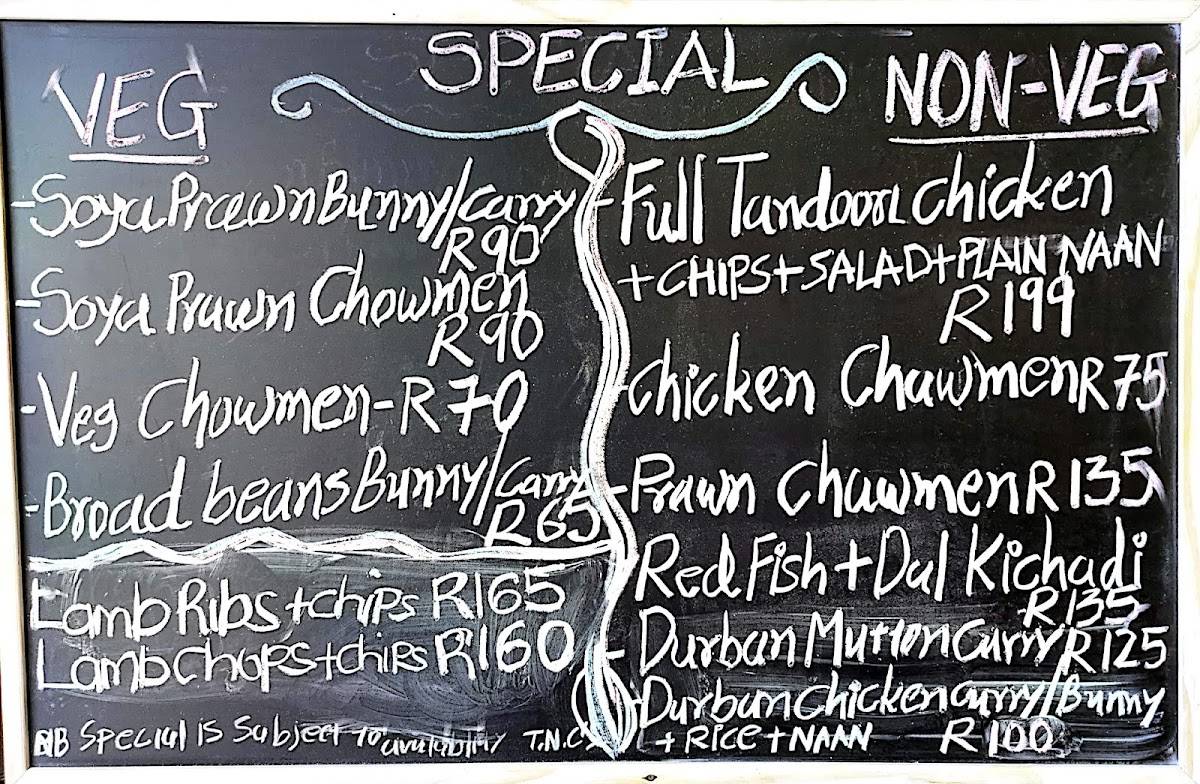 SPECIAL
VEG
- Soya Prawn Bunny/Curry
R90
- Soya Prawn Chowmen
R90
- Veg Chowmen - R70
- Broad beans Bunny/Curry
R65
Lamb Ribs + chips R165
Lamb Chops + chips R160
NB Special is Subject to availability T.N.C
NON-VEG
- Full Tandoori chicken
+ CHIPS + SALAD + PLAIN NAAN
R199
- Chicken Chawmen R75
- Prawn Chawmen R135
Red Fish + Dal Kichadi
R135
- Durban Mutton Curry R125
- Durban Chicken Curry/Bunny
+ RICE + NAAN R100